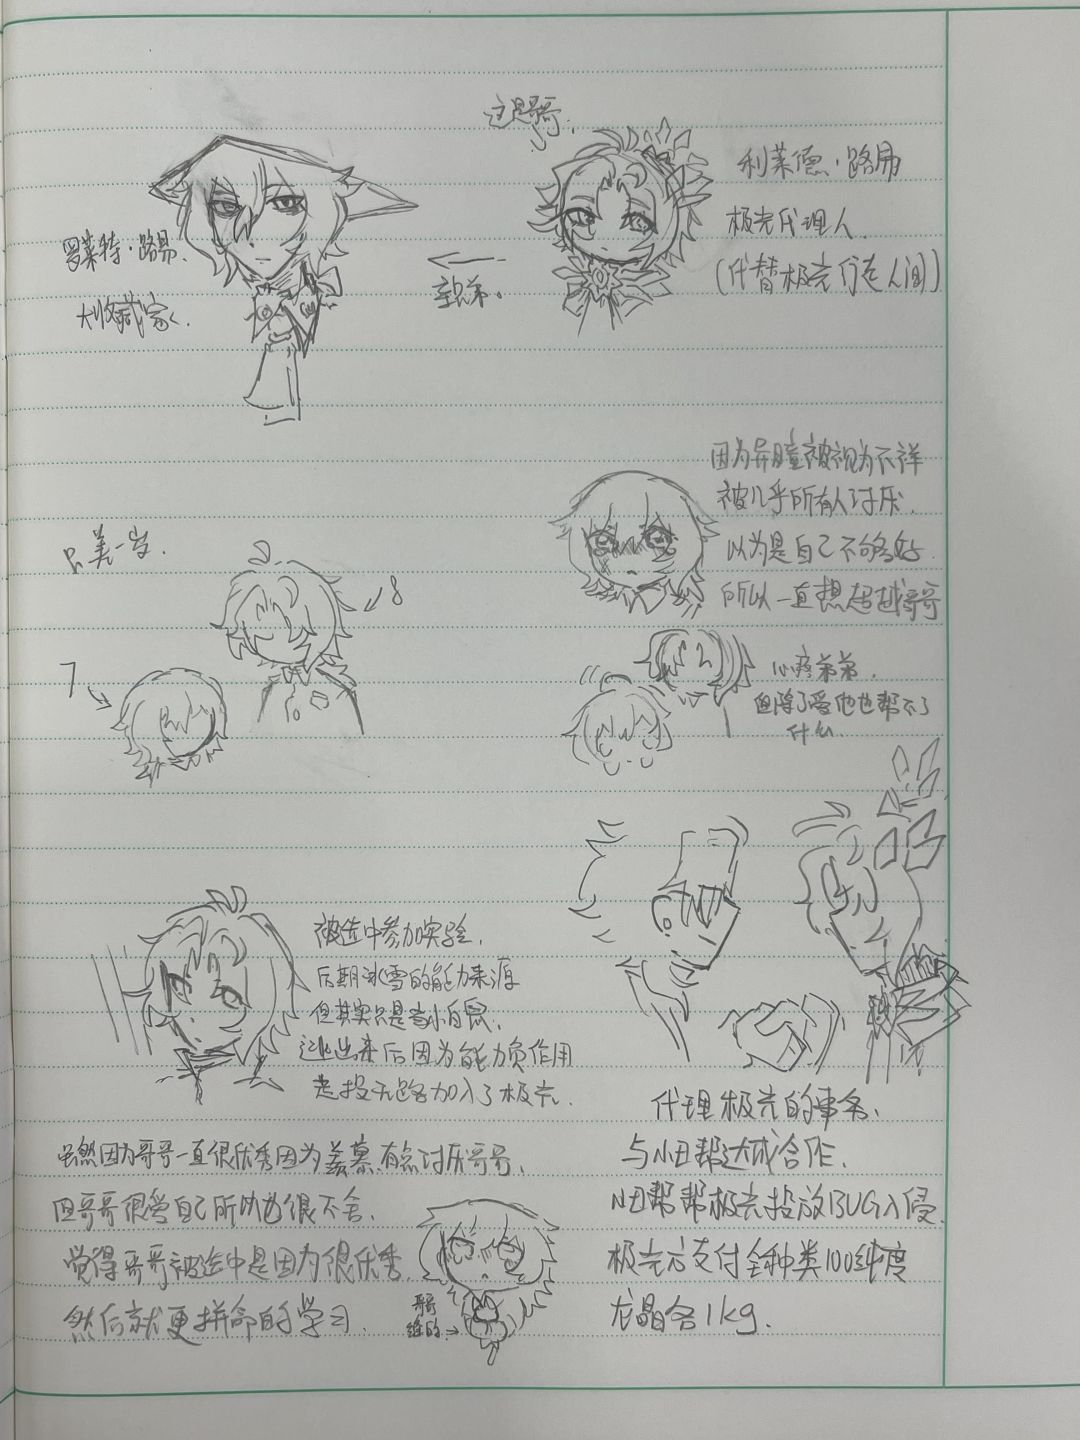 这是哥哥
利莱德·路易
极光代理人
(代替极光行走人间)
罗莱特·路易.
大收藏家.
亲兄弟。
因为异瞳被视为不祥
被几乎所有人讨厌.
以为是自己不够好.
所以一直想超越哥哥
只差一岁.
8
7
心疼弟弟.
但除了爱他也帮不了
什么.
被选中参加实验.
后期冰雪的能力来源
但其实只是当小白鼠.
逃出来后因为能力负作用
走投无路加入了极光.
代理极光的事务.
与小丑帮达成合作.
小丑帮帮极光投放BUG入侵.
极光方支付全种类100纯度
龙晶各1kg.
虽然因为哥哥一直很优秀因为羡慕有点讨厌哥哥.
但哥哥很爱自己所以也很不舍.
觉得哥哥被选中是因为很优秀.
然后就更拼命的学习.
哥哥
的→